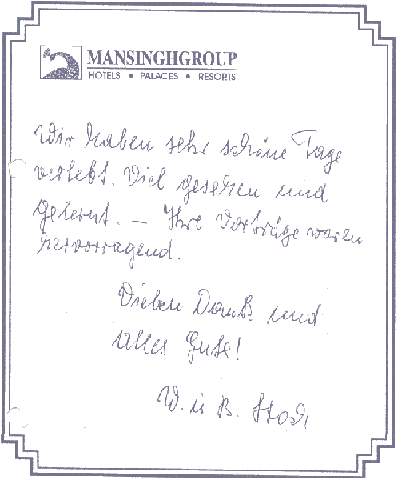 MANSINGHGROUP
HOTELS • PALACES • RESORTS
Wir haben sehr schöne Tage
verlebt. Viel gesehen und
gelernt. — Ihre Vorträge waren
hervorragend.
Vielen Dank und
alles Gute!
W. u B. Stock